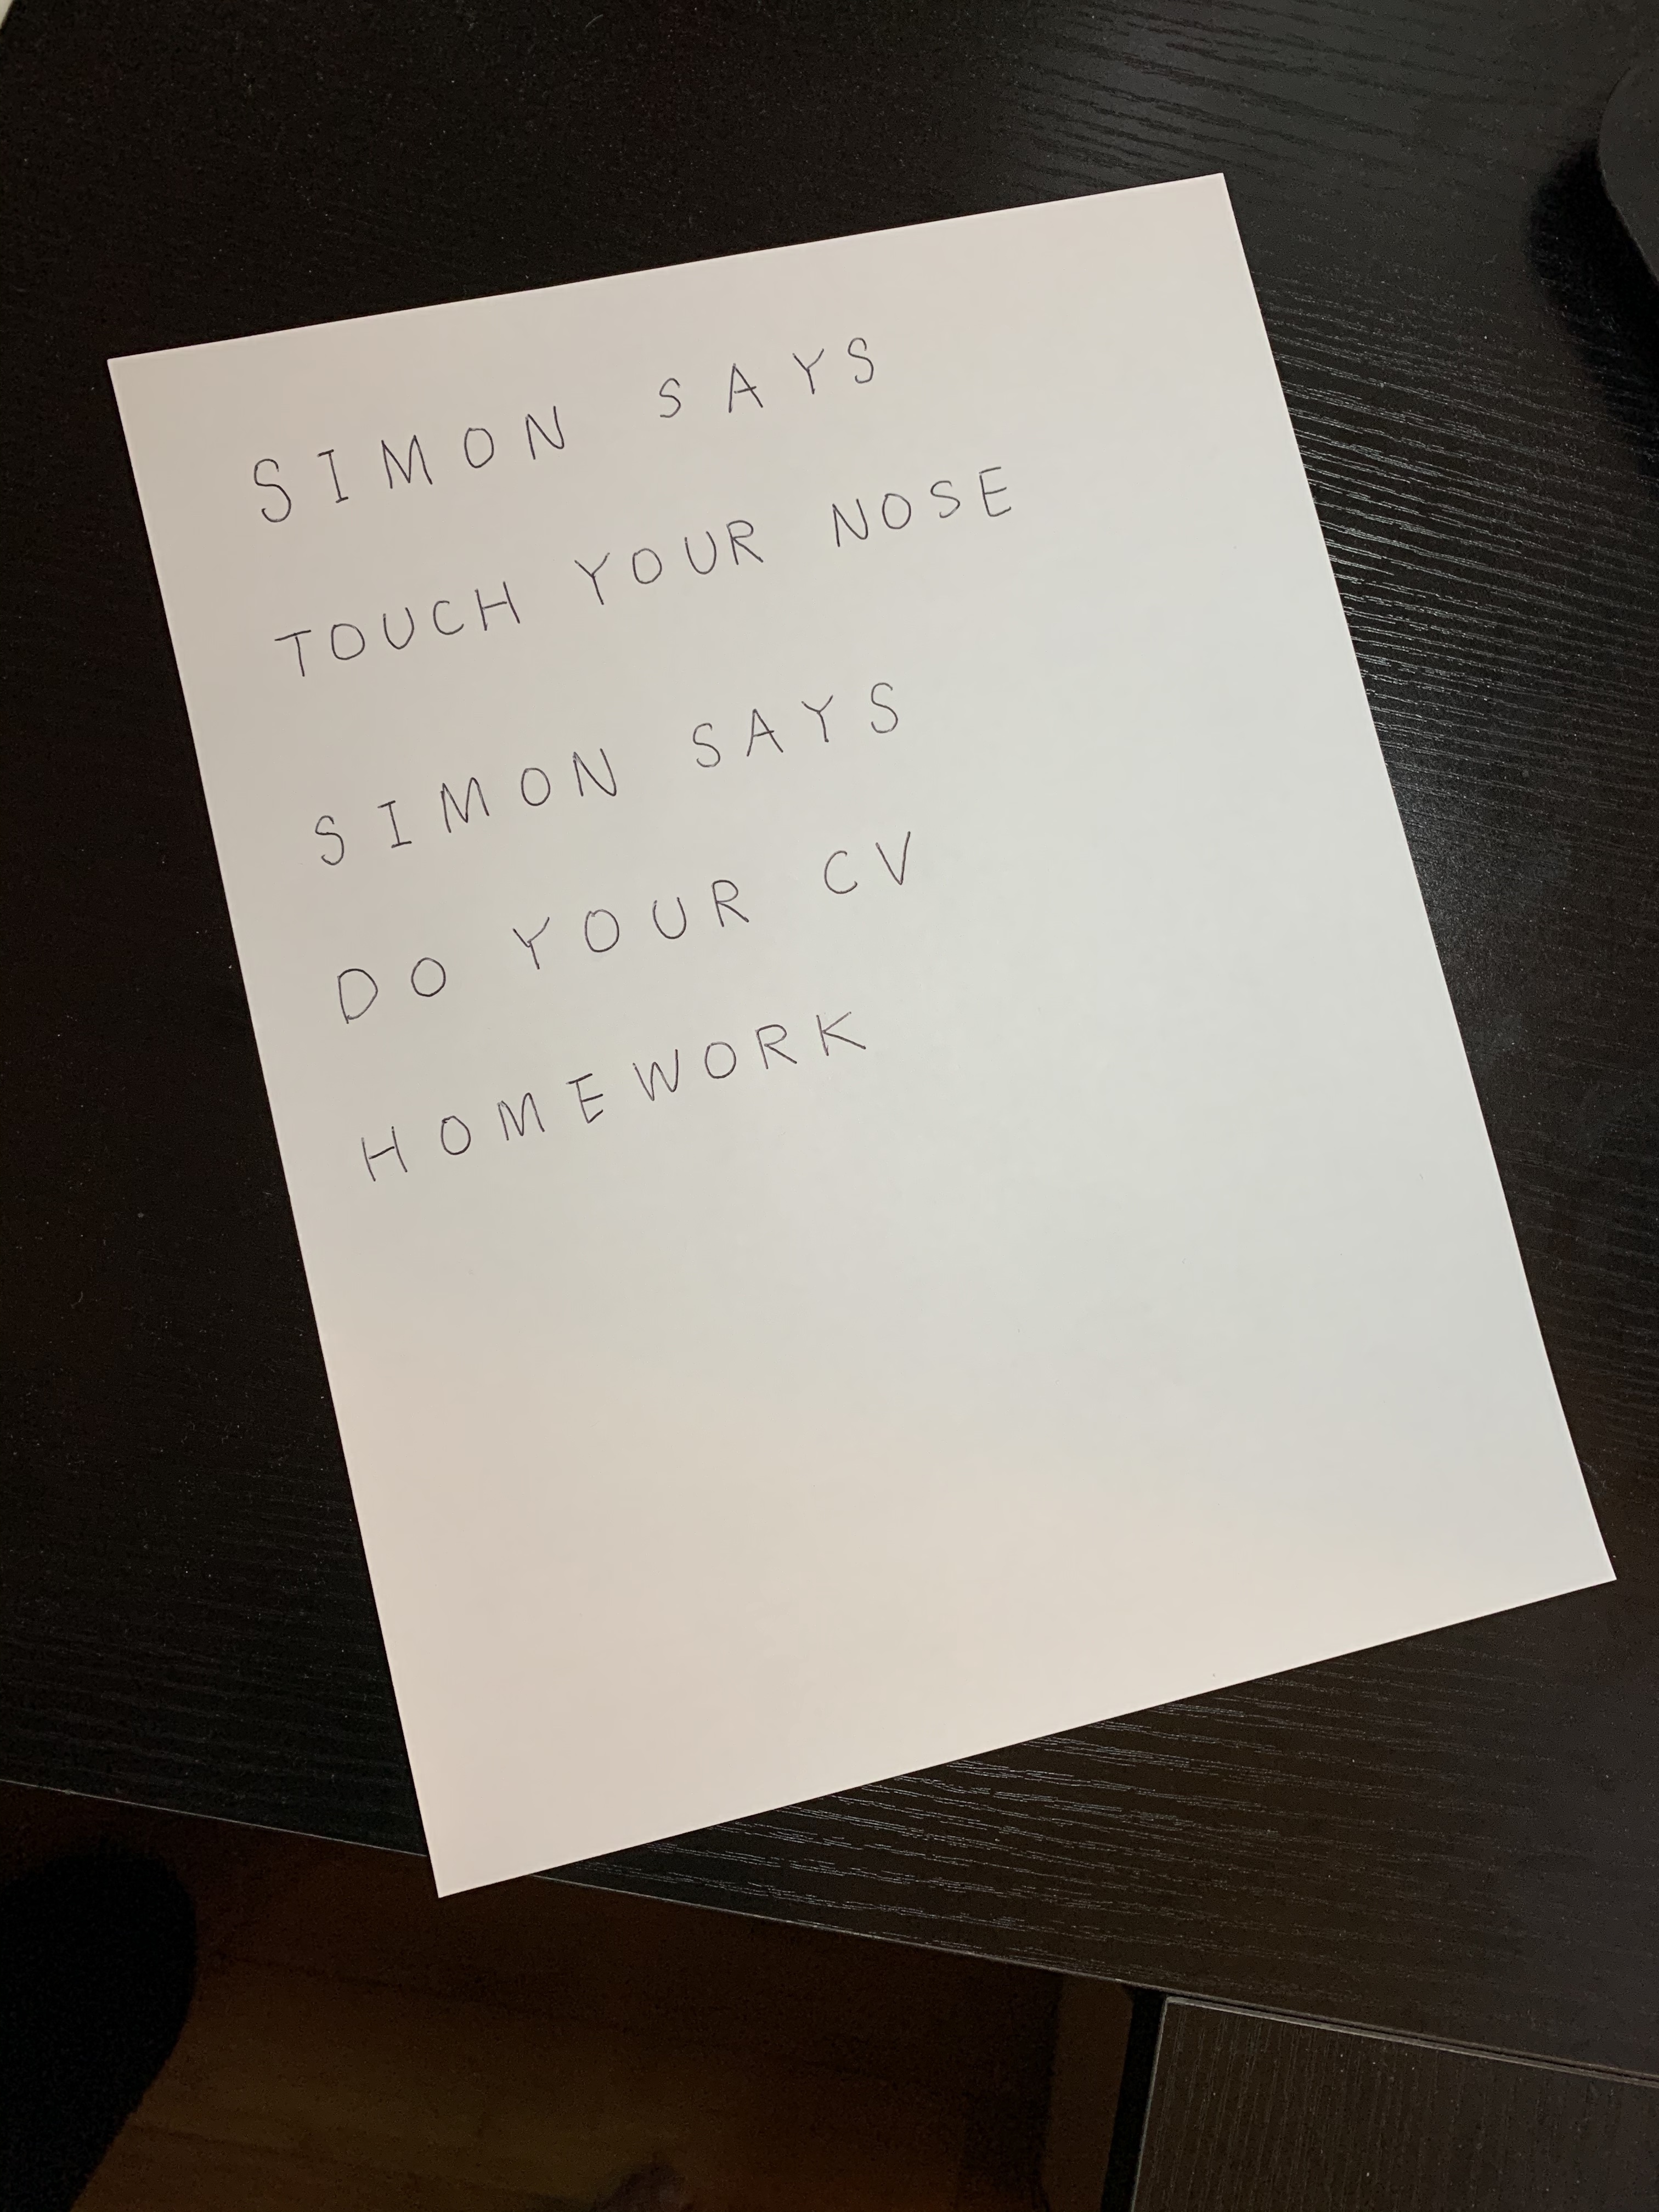 SIMON SAYS
TOUCH YOUR NOSE
SIMON SAYS
DO YOUR CV
HOMEWORK